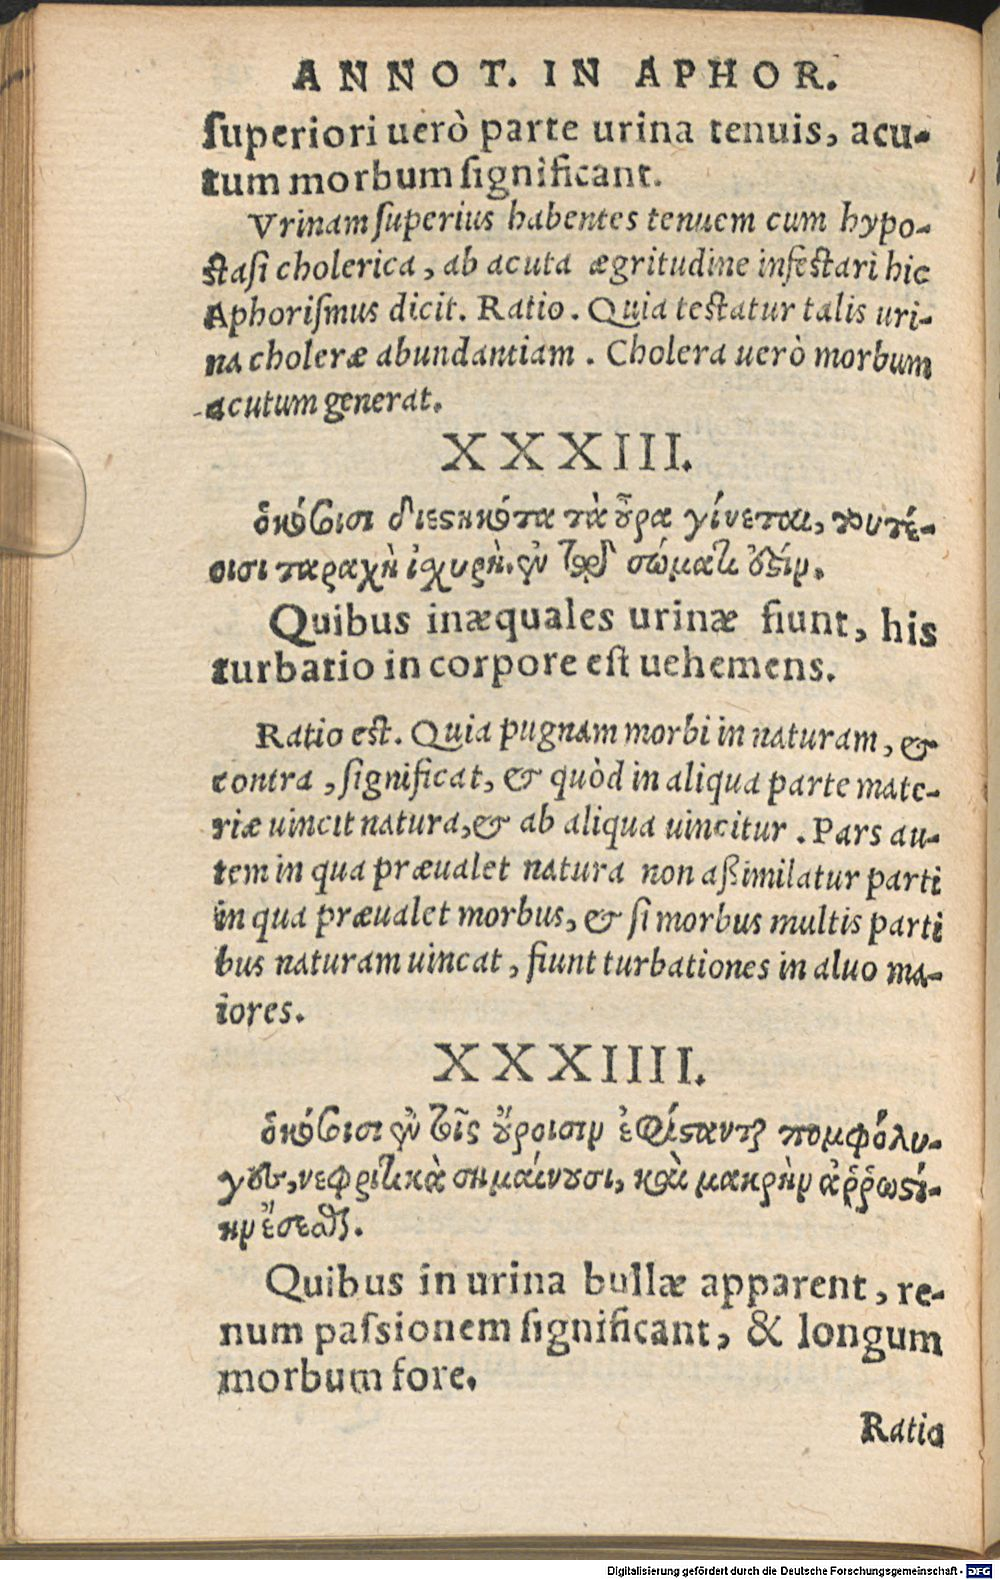 ANNOT. IN APHOR.
superiori uerò parte urina tenuis, acu-
tum morbum significant.
Vrinam superius habentes tenuem cum hypo-
stasi cholerica, ab acuta ægritudine infestari hic
Aphorismus dicit. Ratio. Quia testatur talis uri-
na choleræ abundantiam. Cholera uerò morbum
acutum generat.
XXXIII.
ὁκόσοισι διεστηκότα τὰ οὖρα γίνεται, τουτέ-
οισι ταραχὴ ἰσχυρὴ ἐν τῷ σώματι ἐστίν.
Quibus inæquales urinæ fiunt, his
turbatio in corpore est uehemens.
Ratio est. Quia pugnam morbi in naturam, &
contra, significat, & quòd in aliqua parte mate-
riæ uincit natura, & ab aliqua uincitur. Pars au-
tem in qua præualet natura non assimilatur parti
in qua præualet morbus, & si morbus multis parti
bus naturam uincat, fiunt turbationes in aluo ma-
iores.
XXXIIII.
ὁκόσοισι ἐν τοῖς οὔροισιν ἐφίστανται πομφόλυ-
γες, νεφριτικὰ σημαίνουσι, καὶ μακρὴν ἀῤῥωστί-
ην ἔσεσθαι.
Quibus in urina bullæ apparent, re-
num passionem significant, & longum
morbum fore.
Ratio
Digitalisierung gefördert durch die Deutsche Forschungsgemeinschaft - DFG